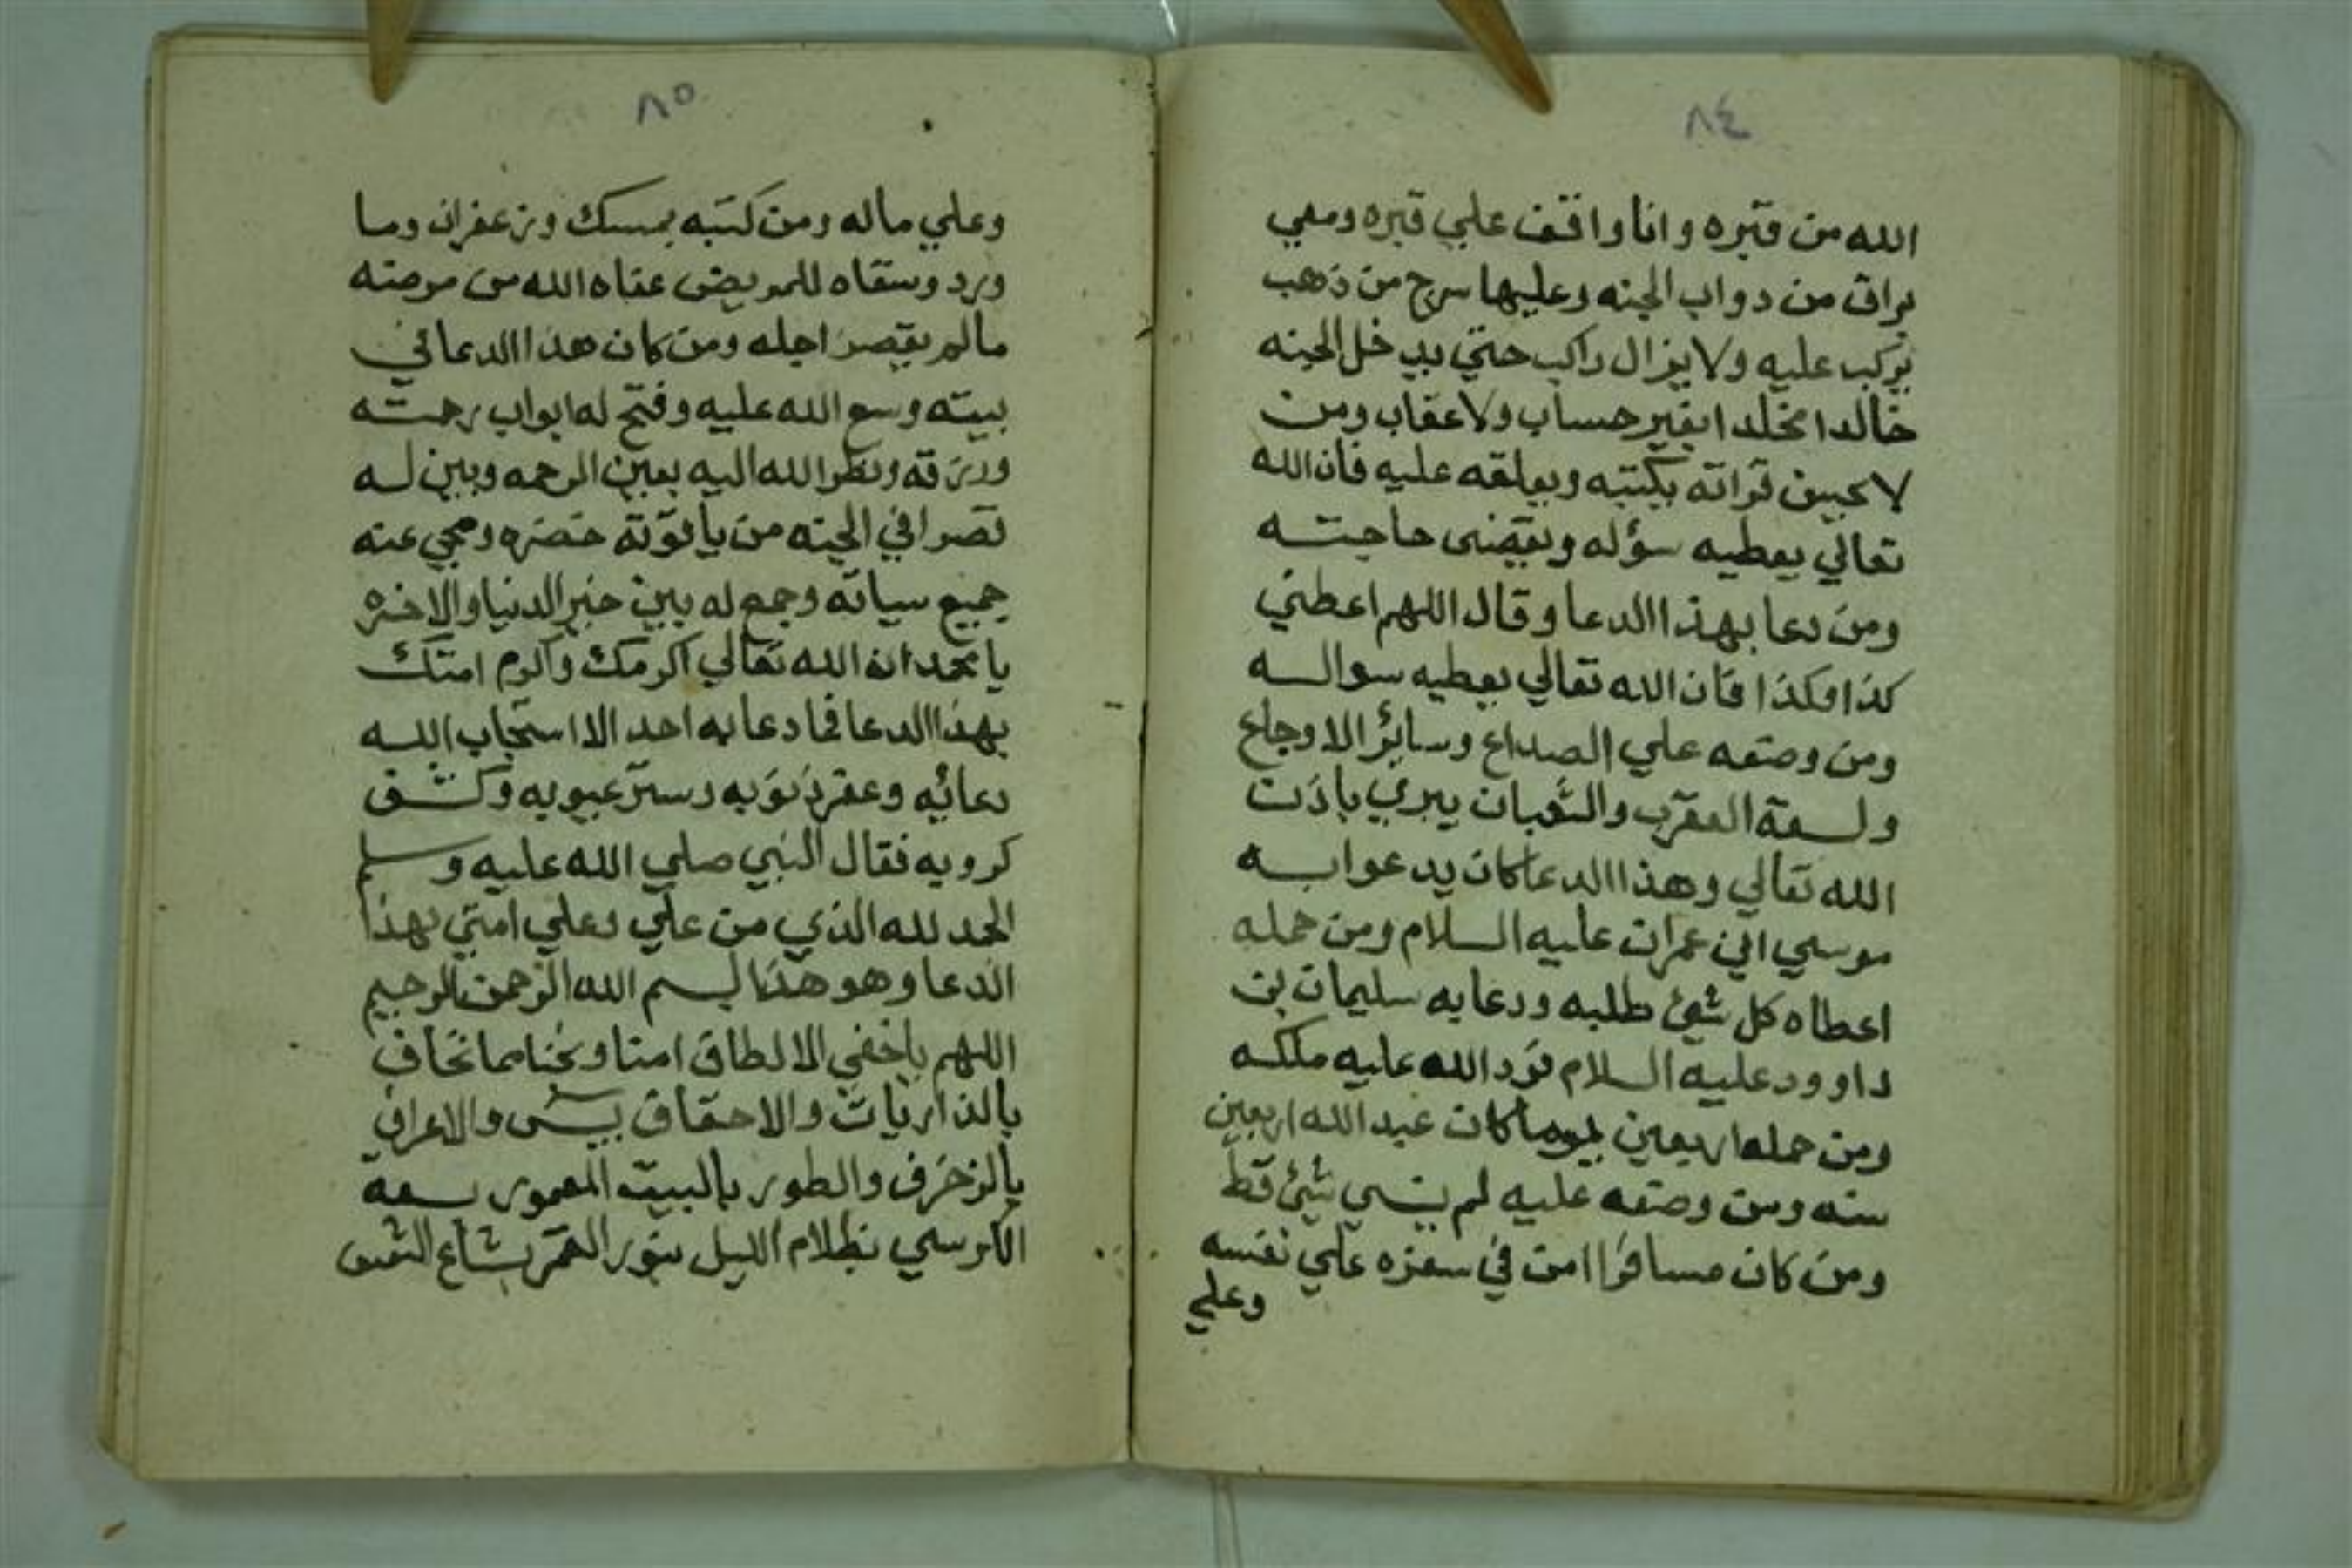 ٨٤
الله من قبره وانا واقف علي قبره ومعي
براق من دواب الجنه وعليها سرج من ذهب
يركب عليه ولا يزال راكب حتي يدخل الجنه
خالدا مخلدا بغير حساب ولا عقاب ومن
لا يحسن قراته يكتبه ويعلقه عليه فان الله
تعالي يعطيه سؤله ويقضى حاجته
ومن دعا بهذا الدعا وقال اللهم اعطني
كذا وكذا فان الله تعالي يعطيه سواله
ومن وضعه علي الصداع وسائر الاوجاع
ولسعة العقرب والثعبان يبري باذن
الله تعالي وهذا الدعا كان يدعوا به
موسي ابن عمران عليه السلام ومن حمله
اعطاه كل شئ طلبه ودعا به سليمان بن
داوود عليه السلام فرد الله عليه ملكه
ومن حمله اربعين يوما كان عبد الله اربعين
سنه ومن وضعه عليه لم ينسي شئ قط
ومن كان مسافرا امن في سفره علي نفسه
وعلي
٨٥
وعلي ماله ومن كتبه بمسك وزعفران وما
ورد وسقاه للمريض عفاه الله من مرضه
مالم يقصر اجله ومن كان هذا الدعا في
بيته وسع الله عليه وفتح له ابواب رحمته
ورزقه ونظر الله اليه بعين الرحمه وبين له
قصرا في الجنه من ياقوتة خضره ومحي عنه
جميع سياته وجمع له بين خير الدنيا والاخره
يا محمد ان الله تعالي اكرمك واكرم امتك
بهذا الدعا فما دعا به احد الا استجاب الله
دعائه وغفر ذنوبه وستر عيوبه وكشف
كروبه فقال النبي صلي الله عليه وسلم
الحمد لله الذي من علي وعلي امتي بهذا
الدعا وهو هذا بسم الله الرحمن الرحيم
اللهم يا خفي الالطاف امنا ونجنا مما نخاف
بالذاريات والاحقاف بيس والاعراف
بالزخرف والطور بالبيت المعمور بسعة
الكرسي بظلام الليل بنور القمر بشاع الشمس